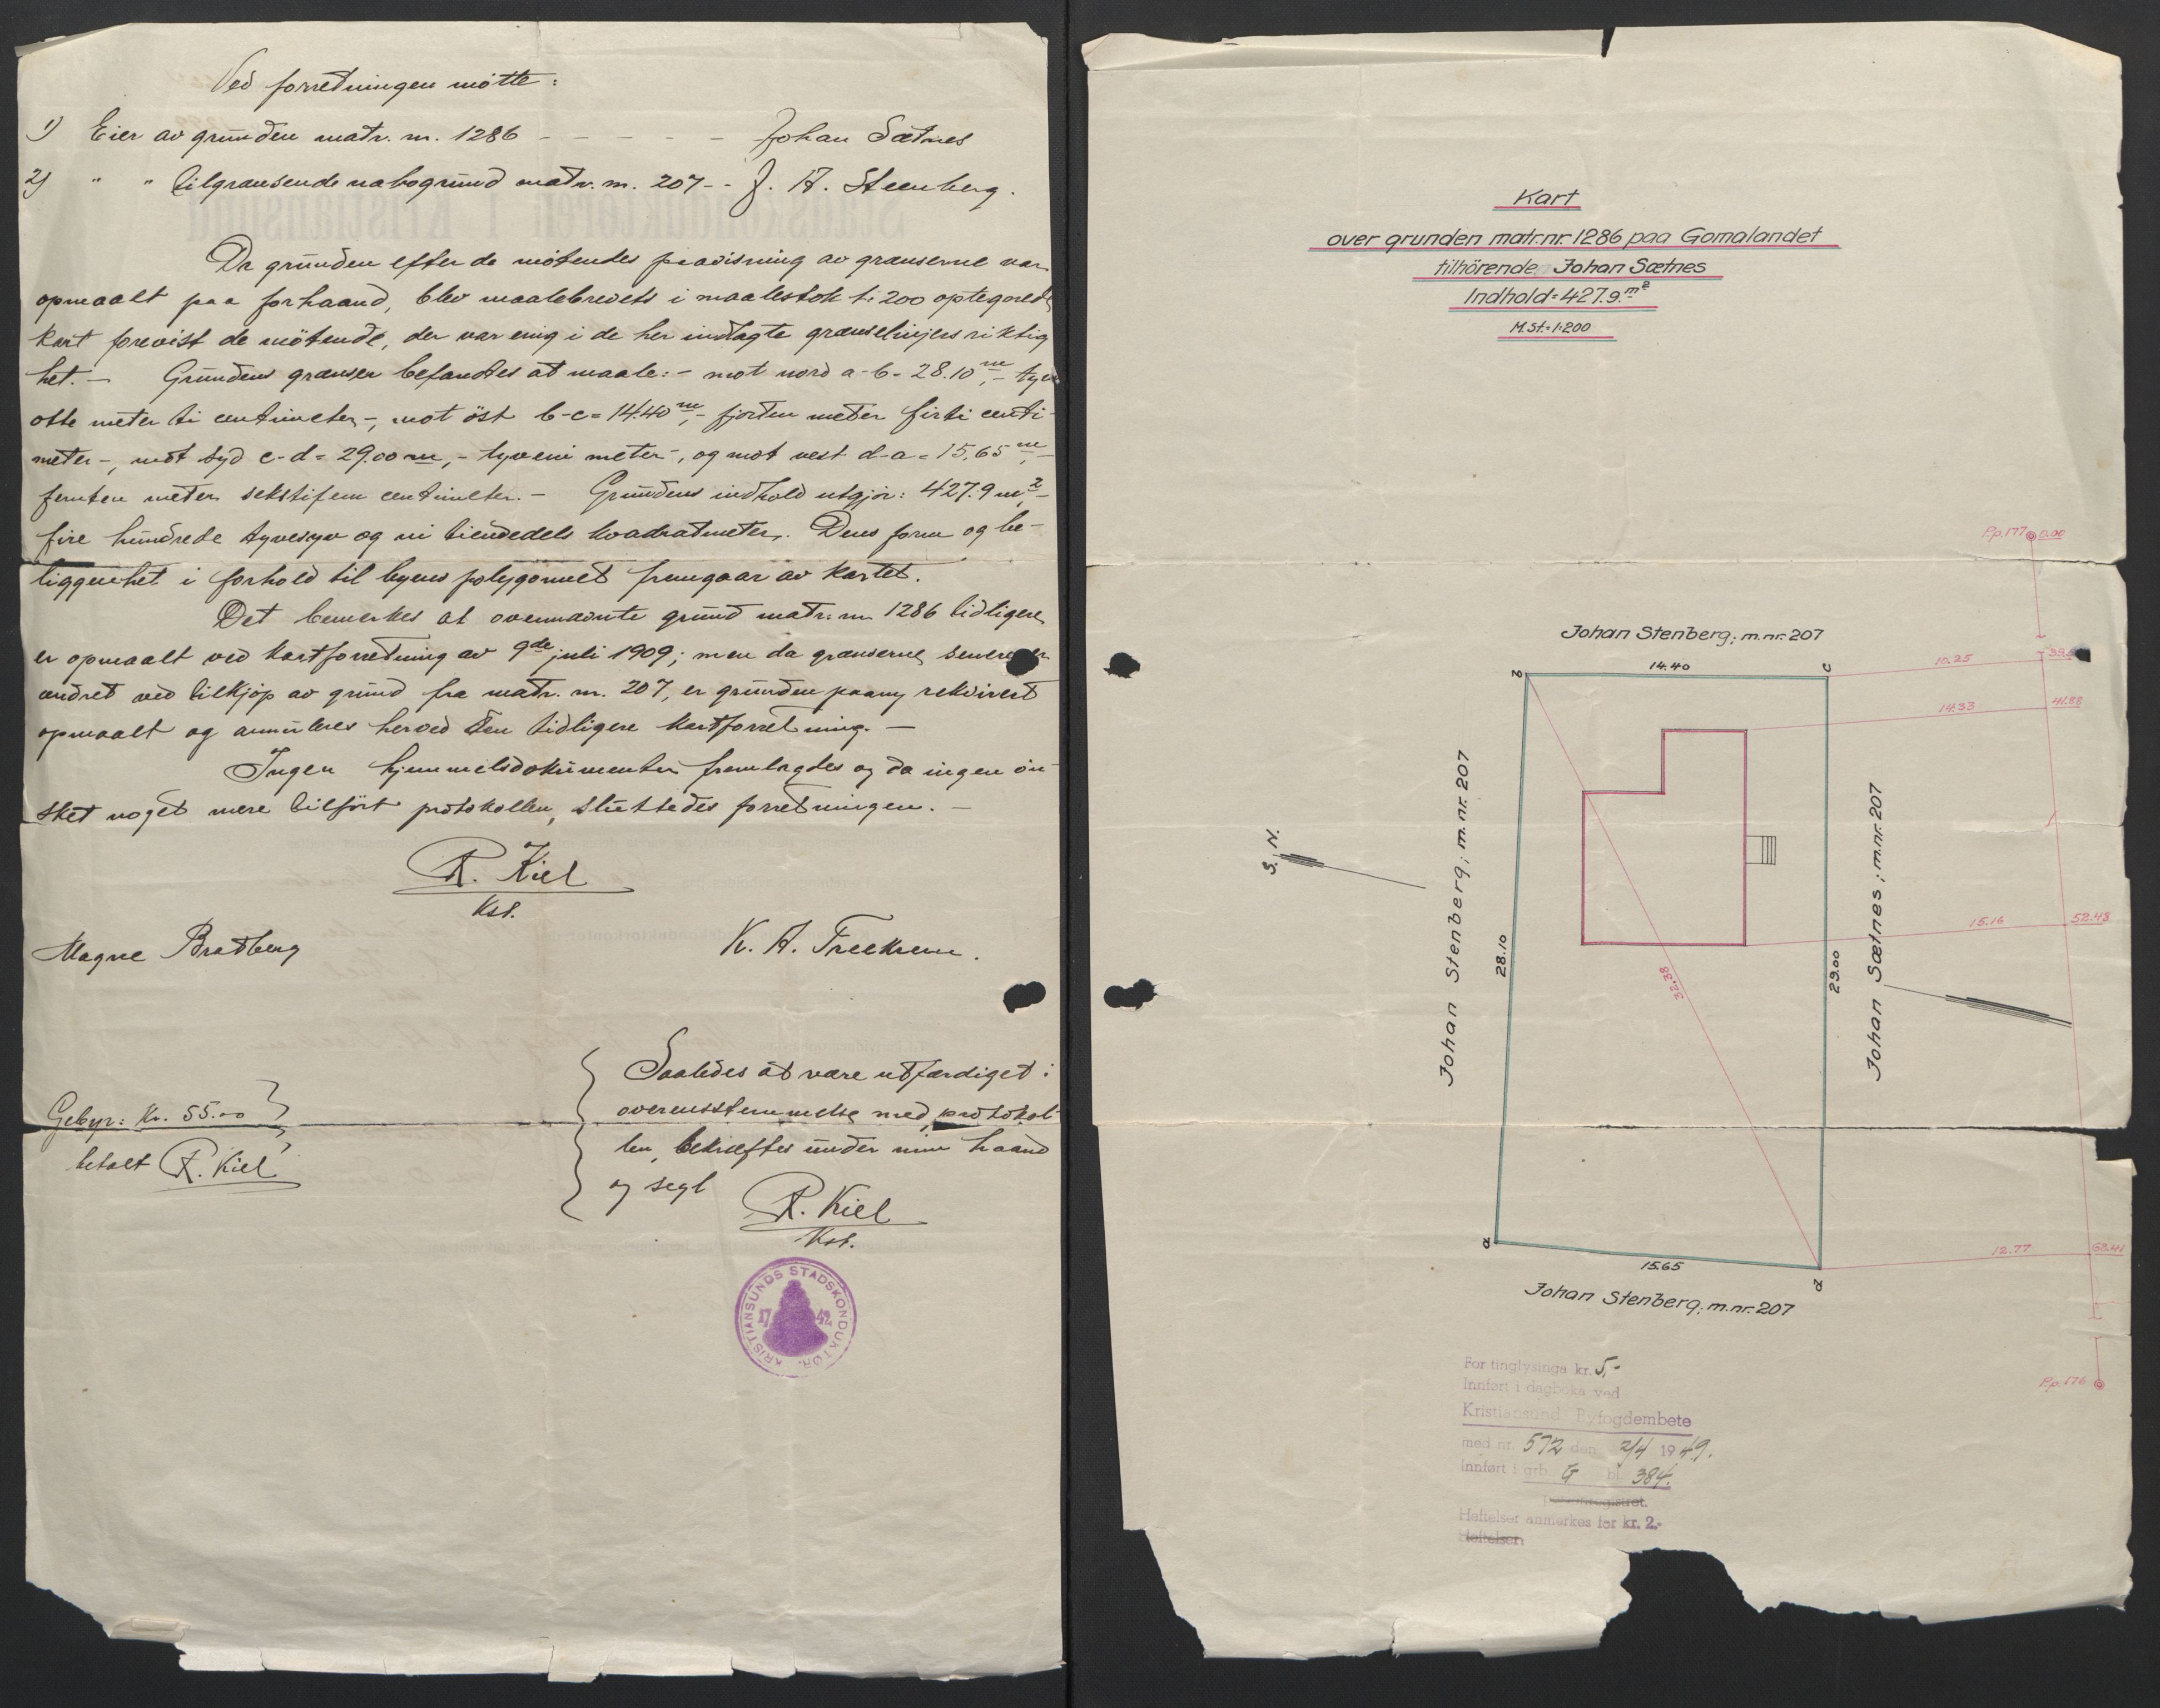 Ved forretningen møtte:
1) Eier av grunden matr. nr. 1286 - - - - - Johan Sætnes
2) " " tilgrænsende nabogrund matr. nr. 207 - - J. A. Steenberg.
Da grunden efter de møtendes paavisning av grænserne var
opmaalt paa forhaand, blev maalebrevets i maalestok 1:200 optegnede
kart forevist de møtende, der var enig i de her indlagte grænselinjers riktig
het. - Grundens grænser befandtes at maale: - mot nord a-b = 28.10 m, - tyve
otte meter ti centimeter -, mot øst b-c = 14.40 m, - fjorten meter firti centi-
meter -, mot syd c-d = 29.00 m, - tyveni meter -, og mot vest d-a = 15.65 m, -
femten meter sekstifem centimeter. - Grundens indhold utgjør: 427.9 m², -
fire hundrede tyvesyv og ni tiendedels kvadratmeter. Dens form og be-
liggenhet i forhold til byens polygonnet fremgaar av kartet.
Det bemerkes at ovennævnte grund matr. nr. 1286 tidligere
er opmaalt ved kartforretning av 9de juli 1909; men da grænserne senere er
ændret ved tilkjøp av grund fra matr. nr. 207, er grunden paany rekvirert
opmaalt og annuleres herved den tidligere kartforretning. -
Ingen hjemmelsdokumenter fremlagdes og da ingen øn-
sket noget mere tilført protokollen, sluttedes forretningen. -
R. Kiel
Kst.
Magne Bratberg K. A. Freekrem.
Saaledes at være utfærdiget i
overensstemmelse med protokol-
len, bekræftes under min haand
og segl R. Kiel
Kst.
Gebyr: Kr. 55.00
betalt R. Kiel
KRISTIANSUNDS STADSKONDUKTØR.
17 42
Kart
over grunden matr.nr. 1286 paa Gomalandet
tilhörende Johan Sætnes
Indhold = 427.9 m²
M.St. = 1:200
P.p. 177 0.00
Johan Stenberg; m.nr. 207
14.40
b
c
10.25
14.33 41.88
Johan Stenberg; m.nr. 207
Johan Sætnes; m.nr. 207
S. N.
28.10
29.00
32.38
15.16 52.48
a
15.65
d
12.77
Johan Stenberg; m.nr. 207
P.p. 176
For tinglysinga kr. 5,-
Innført i dagboka ved
Kristiansund Byfogdembete
med nr. 572 den 2/4 1949.
Innført i grb. G bl. 384.
Heftelser anmerkes for kr. 2.-
Heftelser: